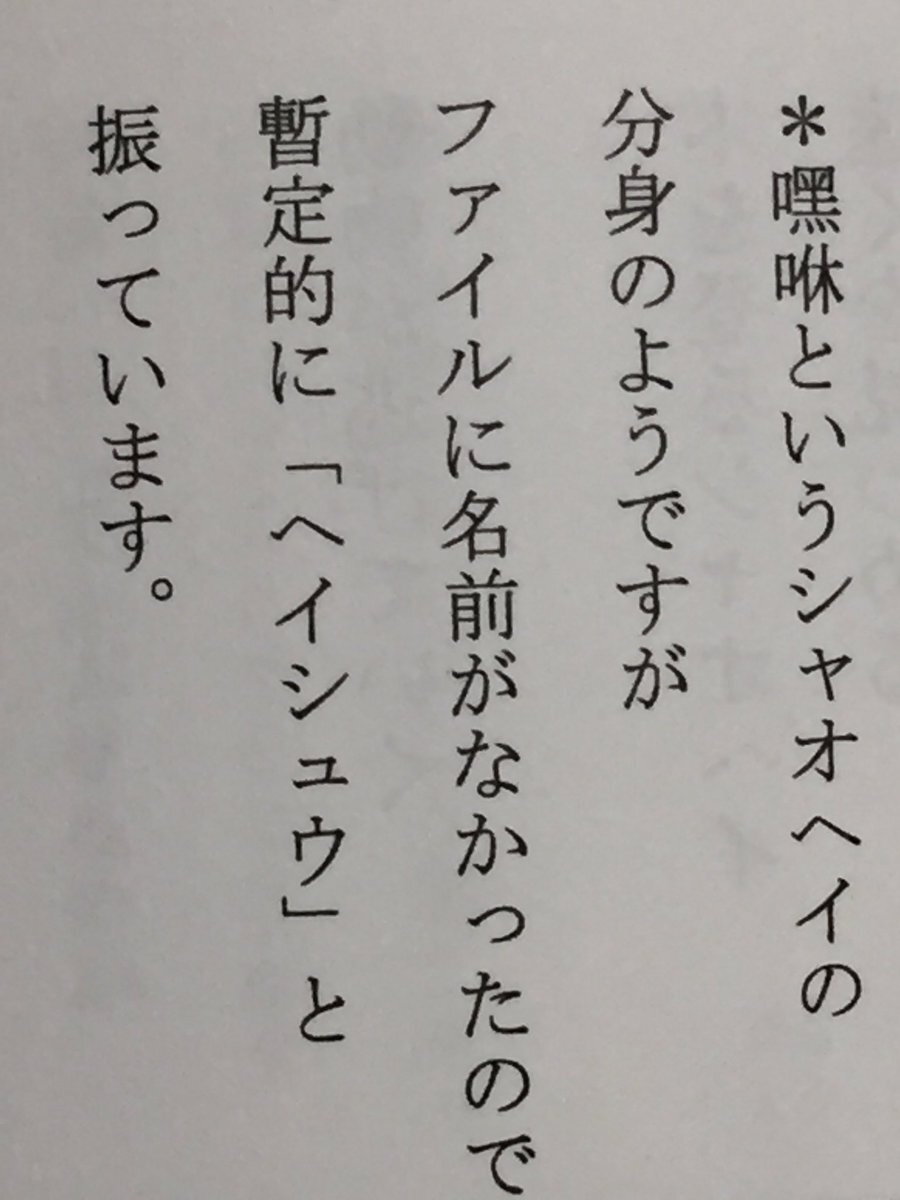 ＊嘿咻というシャオヘイの
分身のようですが
ファイルに名前がなかったので
暫定的に「ヘイシュウ」と
振っています。